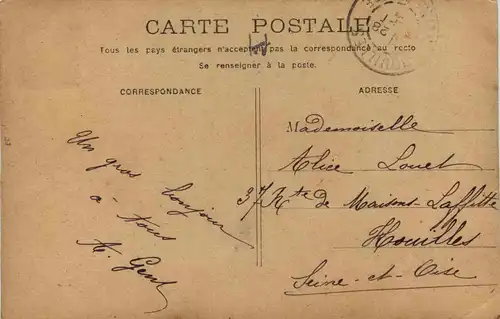 CARTE POSTALE
Tous les pays étrangers n'acceptent pas la correspondance au recto
Se renseigner à la poste.
CORRESPONDANCE
Un gros bonjour
à tous
A. Gent
ADRESSE
Mademoiselle
Alice Louet
37 Rte de Maisons-Laffitte
Houilles
Seine-et-Oise